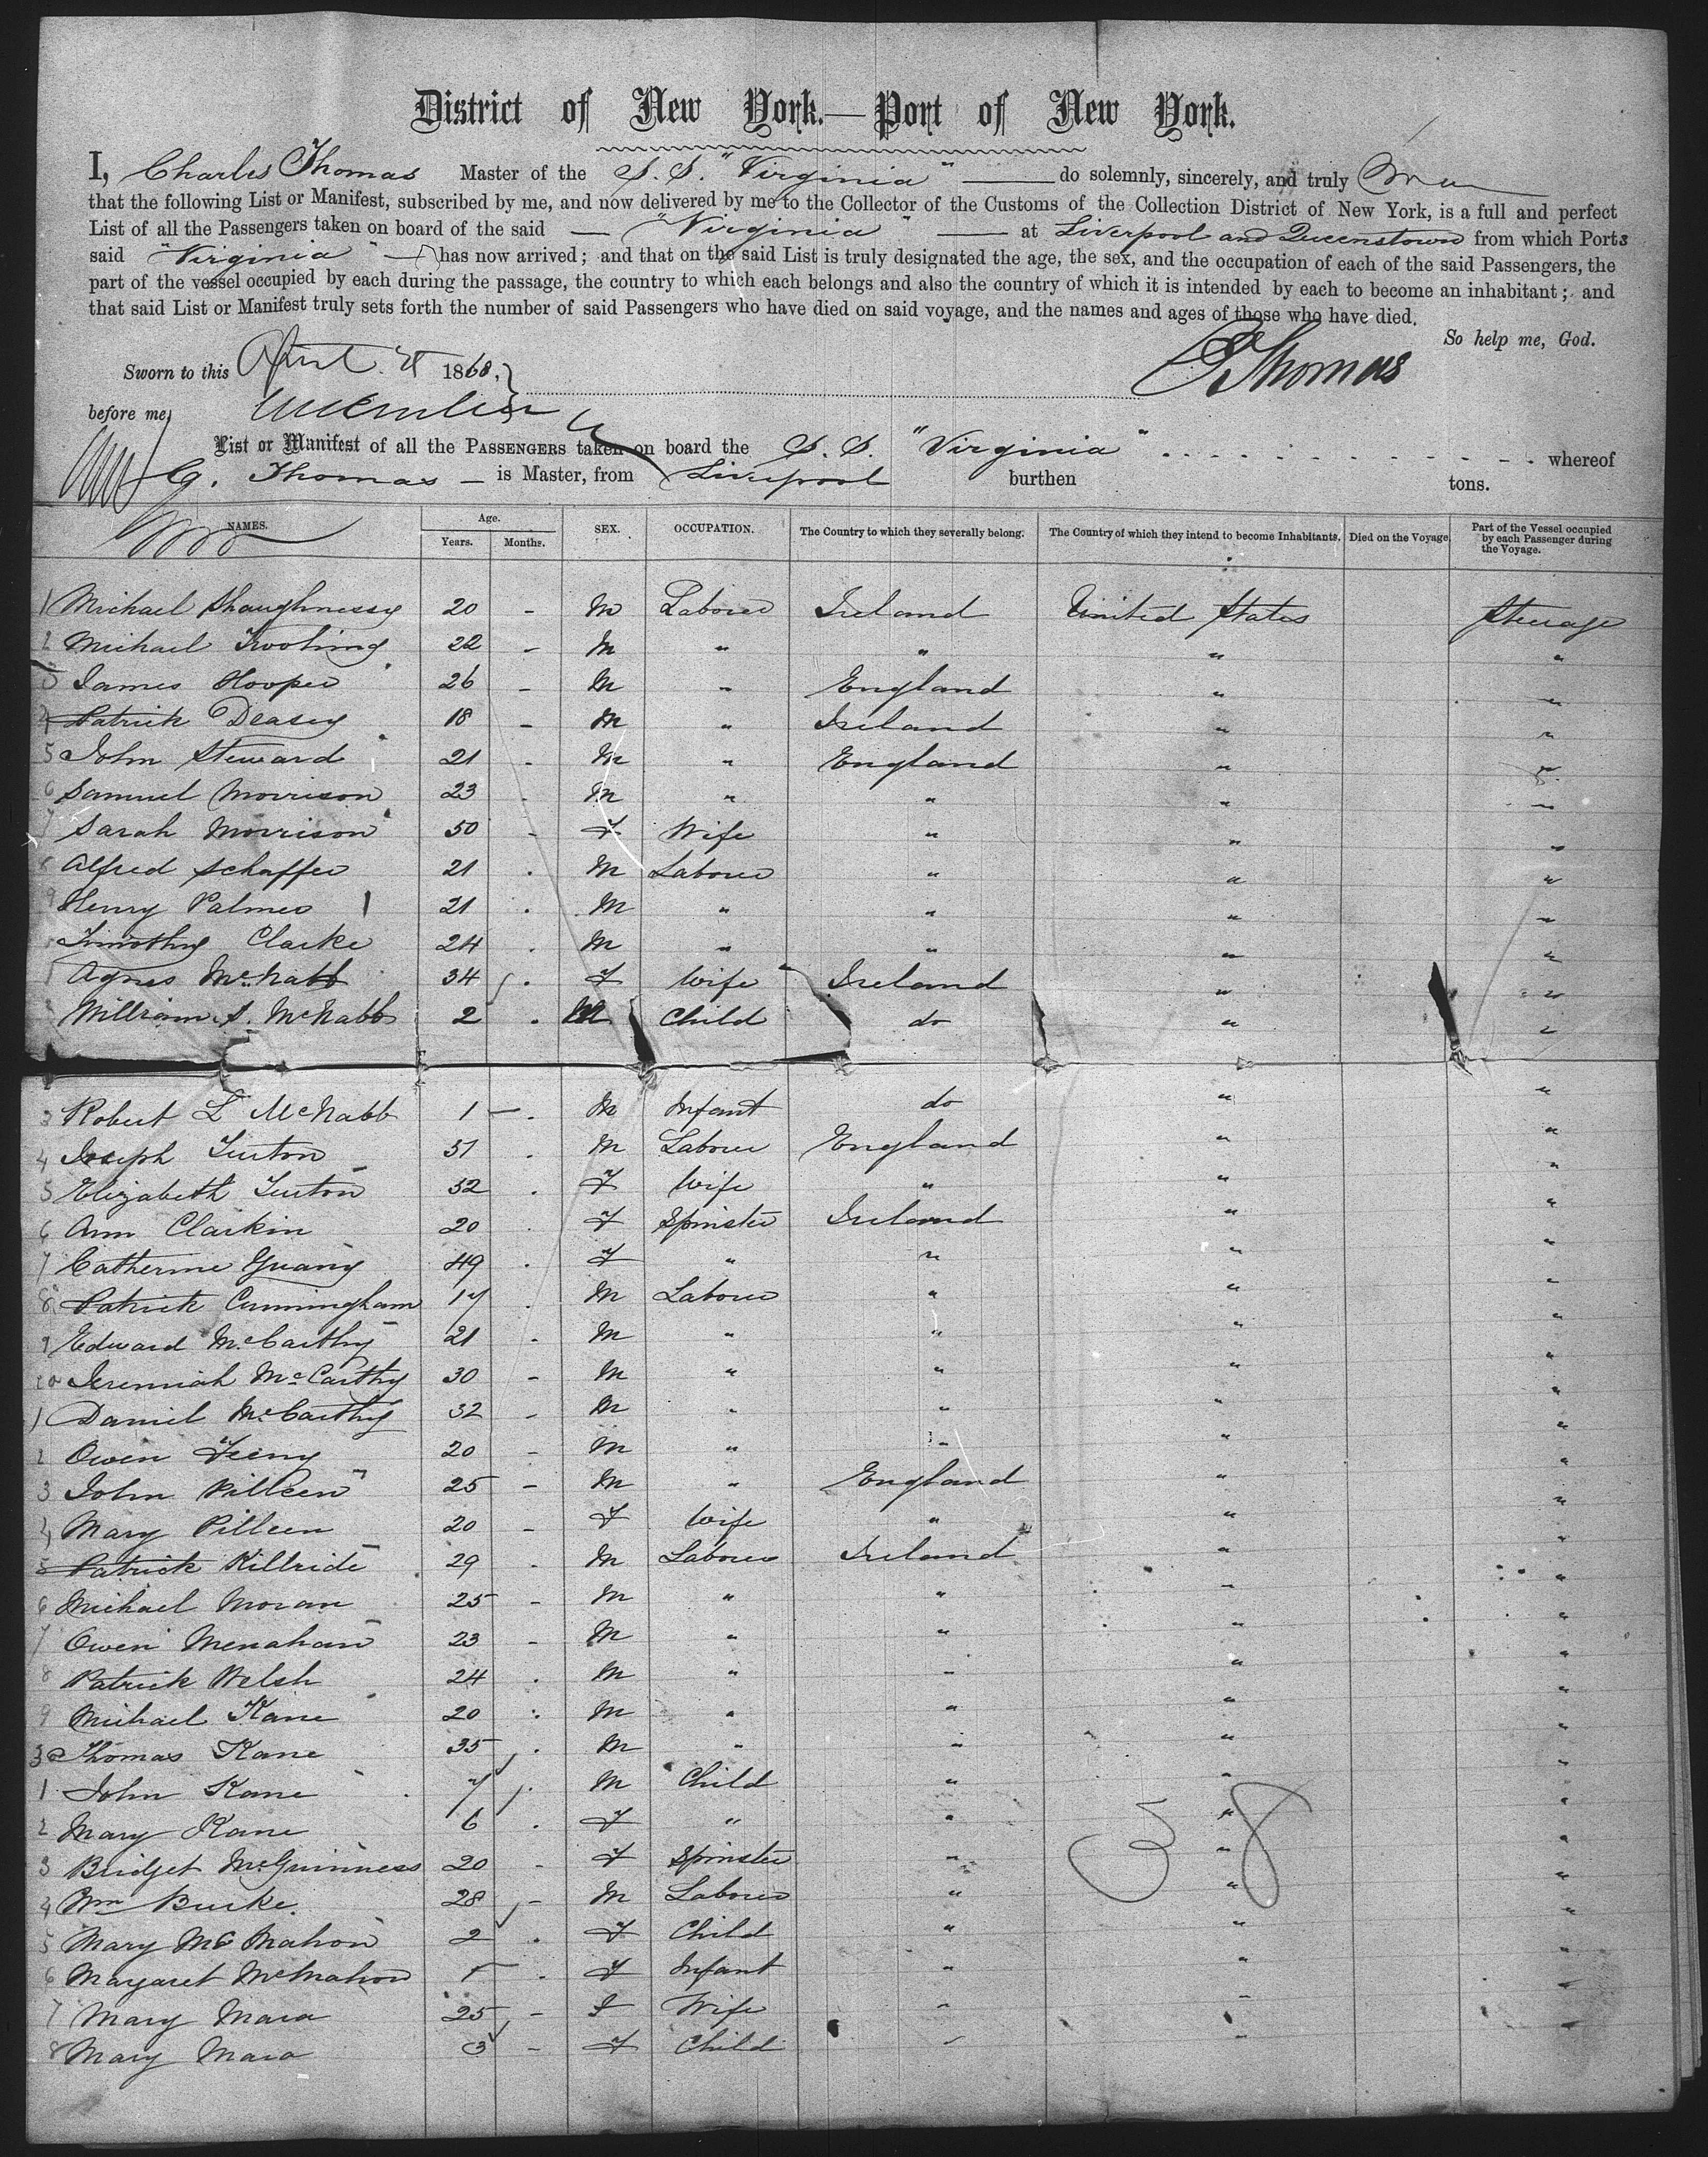 District of New York.—Port of New York.
I, Charles Thomas Master of the S. S. "Virginia" do solemnly, sincerely, and truly
that the following List or Manifest, subscribed by me, and now delivered by me to the Collector of the Customs of the Collection District of New York, is a full and perfect
List of all the Passengers taken on board of the said "Virginia" at Liverpool and Queenstown from which Ports
said "Virginia" has now arrived; and that on the said List is truly designated the age, the sex, and the occupation of each of the said Passengers, the
part of the vessel occupied by each during the passage, the country to which each belongs and also the country of which it is intended by each to become an inhabitant; and
that said List or Manifest truly sets forth the number of said Passengers who have died on said voyage, and the names and ages of those who have died.
So help me, God.
Sworn to this April 1868. C Thomas
before me,
List or Manifest of all the PASSENGERS taken on board the S. S. "Virginia" whereof
C. Thomas is Master, from Liverpool burthen tons.
NAMES. Age. Years. Months. SEX. OCCUPATION. The Country to which they severally belong. The Country of which they intend to become Inhabitants. Died on the Voyage Part of the Vessel occupied by each Passenger during the Voyage.
1 Michael Shaughnessy 20 - M Labourer Ireland United States Steerage
2 Michael 22 - M " " " "
3 James Hooper 26 - M " England " "
4 Patrick Deasy 18 - M " Ireland " "
5 John Steward 21 - M " England " "
6 Samuel Morrison 23 - M " " " "
7 Sarah Morrison 50 - F Wife " " "
8 Alfred Schaffer 21 . M Labourer " " "
9 Henry Palmer 21 . M " " " "
Timothy Clarke 24 . M " " " "
1 Agnes McNabb 34 . F Wife Ireland " "
William S. McNabb 2 . M Child do " "
3 Robert L McNabb 1 - . M Infant do " "
4 Joseph Turton 51 . M Labourer England " "
5 Elizabeth Turton 52 . F Wife " " "
6 Ann Clarkin 20 . F Spinster Ireland " "
7 Catherine 49 . F " " " "
8 Patrick Cunningham 17 . M Labourer " " "
9 Edward McCarthy 21 . M " " " "
20 Jeremiah McCarthy 30 - M " " " "
1 Daniel McCarthy 32 - M " " " "
2 Owen Feeny 20 - M " " " "
3 John Pilleen 25 - M " England " "
4 Mary Pilleen 20 - F Wife " " "
5 Patrick Kilbride 29 . M Labourer Ireland " "
6 Michael Moran 25 - M " " " "
7 Owen Menahan 23 - M " " " "
8 Patrick Welsh 24 . M " " " "
9 Michael Kane 20 . M " " " "
30 Thomas Kane 35 . M " " " "
1 John Kane 7 . M Child " " "
2 Mary Kane 6 . F " " " "
3 Bridget McGuinness 20 - F Spinster " " "
4 Wm Burke. 28 - M Labourer " " "
5 Mary McMahon 2 . F Child " " "
6 Margaret McMahon . F Infant " " "
7 Mary Mara 25 - F Wife " " "
8 Mary Mara 3 - F Child " " "
38